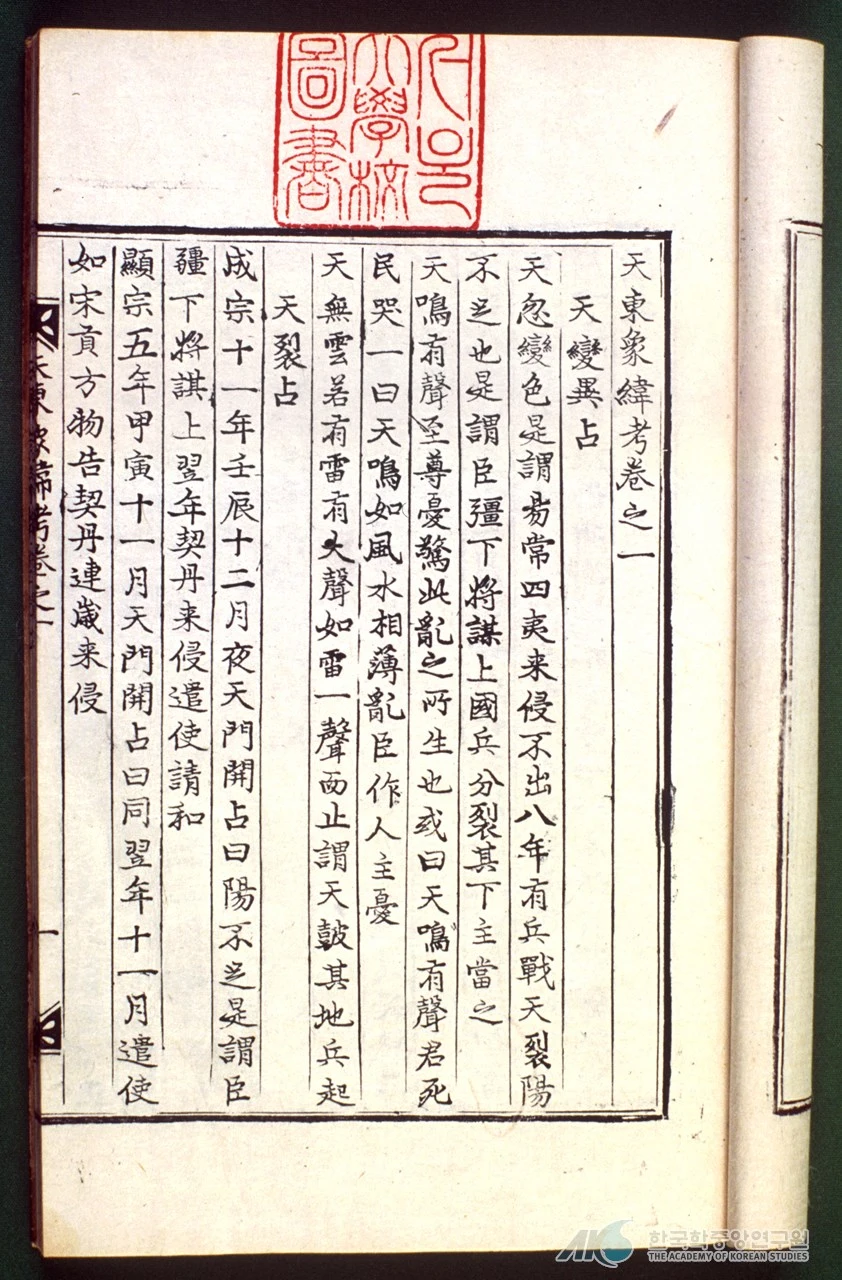 天東象緯考卷之一
天變異占
天忽變色是謂易常四夷来侵不出八年有兵戰天裂陽
不足也是謂臣彊下將謀上國兵分裂其下主當之
天鳴有聲至尊憂驚此亂之所生也或曰天鳴有聲君死
民哭一曰天鳴如風水相薄亂臣作人主憂
天無雲若有雷有大聲如雷一聲而止謂天皷其地兵起
天裂占
成宗十一年壬辰十二月夜天門開占曰陽不足是謂臣
疆下將謀上翌年契丹来侵遣使請和
顯宗五年甲寅十一月天門開占曰同翌年十一月遣使
如宋貢方物告契丹連歲来侵
天東象緯考卷之一
一
大學校
圖書
한국학중앙연구원
THE ACADEMY OF KOREAN STUDIES